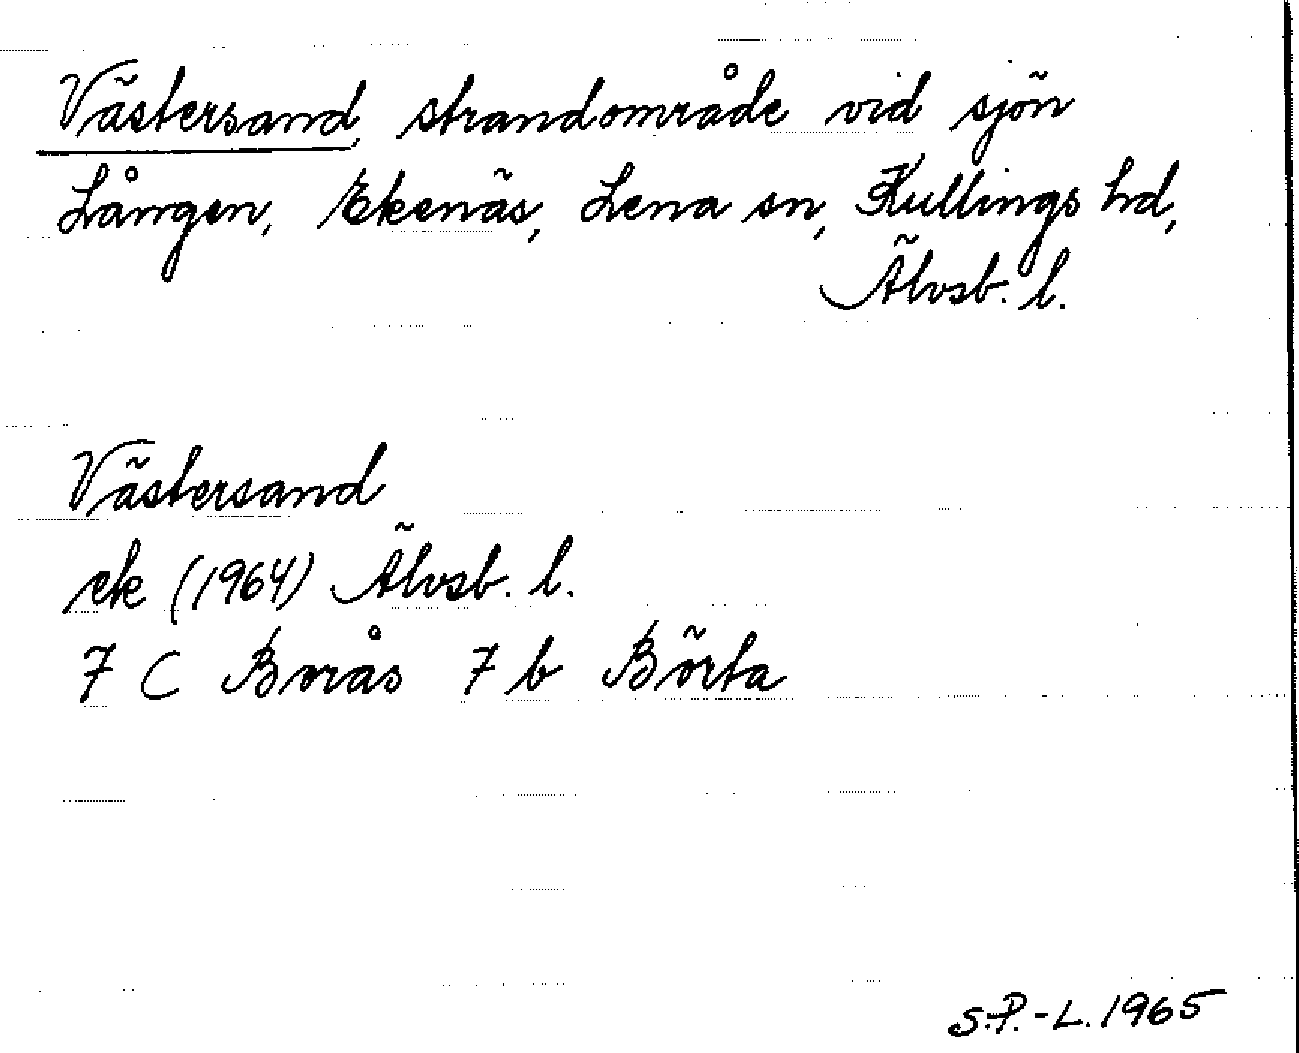 Västersand, strandområde vid sjön
Lången, Ekenäs, Lena sn, Kullings hd,
Älvsb. l.
Västersand
ek (1964) Älvsb. l.
7 C Borås 7 b Börta
S.P.-L. 1965